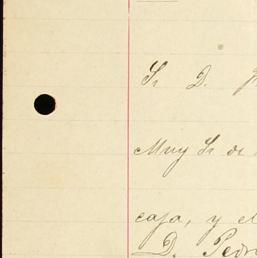 Sr D.
Muy Sr de
caja, y el
D. Pedro